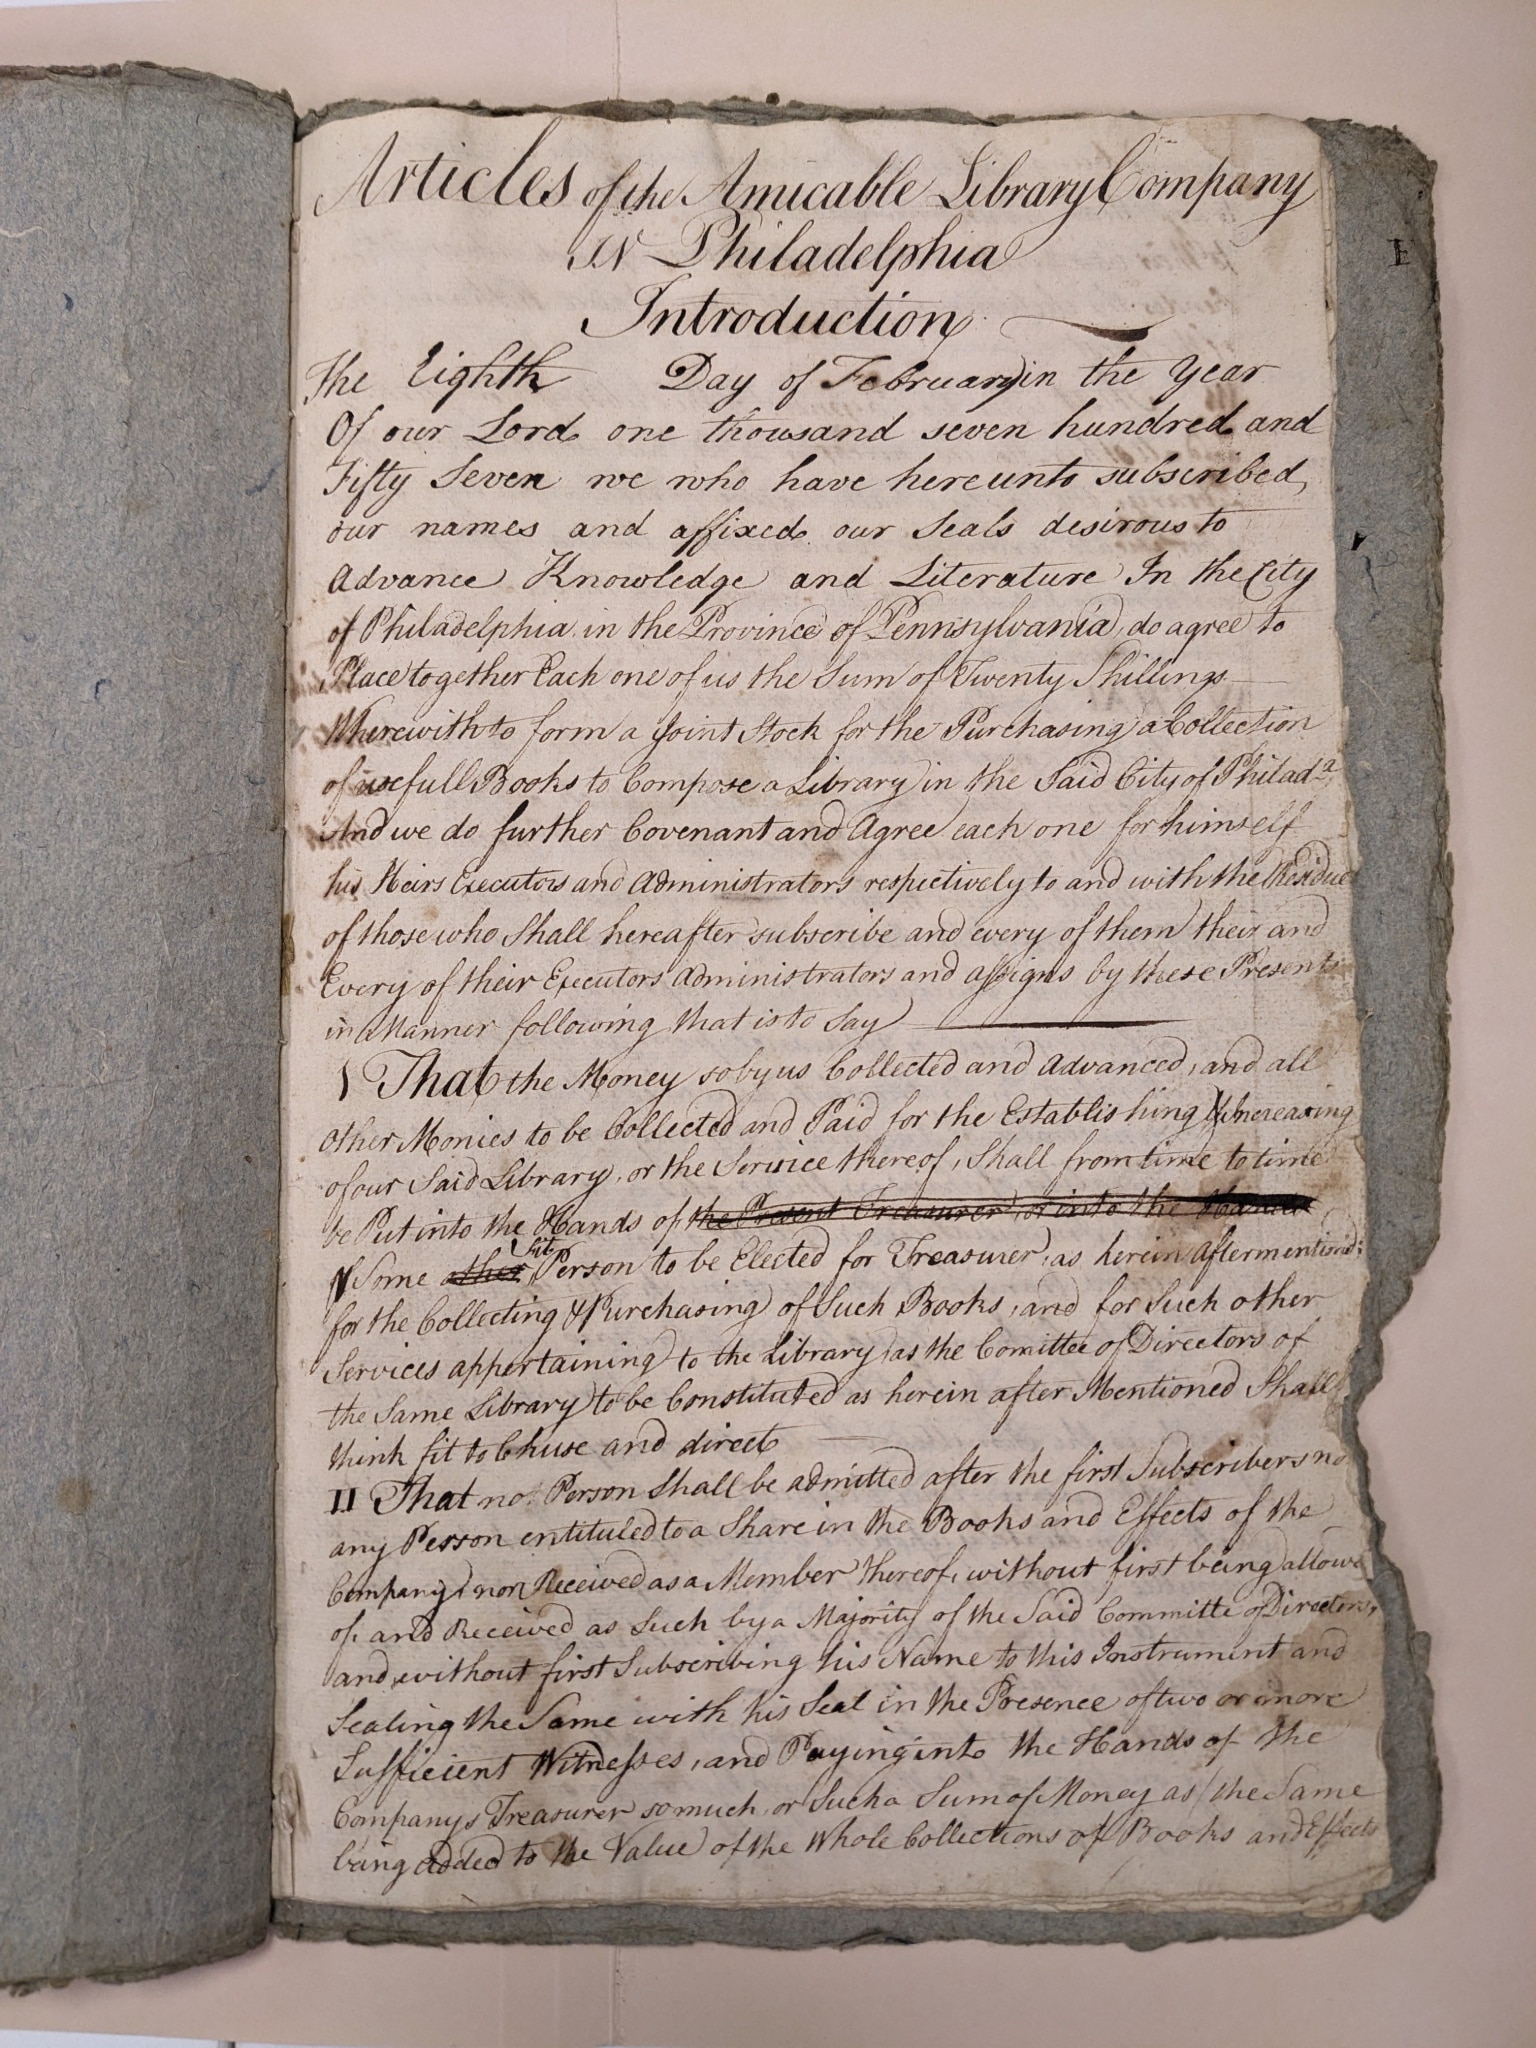 Articles of the Amicable Library Company
IN Philadelphia
Introduction
The Eighth Day of February in the Year
Of our Lord one thousand seven hundred and
Fifty Seven we who have hereunto subscribed
our names and affixed our Seals desirous to
Advance Knowledge and Literature In the City
of Philadelphia in the Province of Pennsylvania, do agree to
Place together Each one of us the Sum of Twenty Shillings
Wherewith to form a Joint Stock for the Purchasing a Collection
of usefull Books to Compose a Library in the Said City of Philada
And we do further Covenant and Agree each one for himself
his Heirs Executors and Administrators respectively to and with the Residue
of those who Shall hereafter subscribe and every of them their and
Every of their Executors Administrators and assigns by these Presents
in Manner following that is to Say
I That the Money so by us Collected and Advanced, and all
Other Monies to be Collected and Paid for the Establishing & Increasing
of our Said Library, or the Service thereof, Shall from time to time
be Put into the Hands of the Present Treasurer, or into the Hands
of Some other fit Person to be Elected for Treasurer, as herein Aftermention'd;
for the Collecting & Purchasing of Such Books, and for Such other
Services appertaining to the Library, as the Comittee of Directors of
the Same Library to be Constituted as herein after Mentioned Shall
think fit to Chuse and direct
II That no Person Shall be admitted after the first Subscribers no
any Person entituled to a Share in the Books and Effects of the
Company, nor Received as a Member thereof, without first being allowe
of, and Received as Such by a Majority of the Said Committe of Directors,
and without first Subscribing his Name to this Instrument and
Sealing the Same with his Seal in the Presence of two or more
Sufficient Witnesses, and Paying into the Hands of the
Companys Treasurer so much, or Such a Sum of Money as the Same
being Added to the Value of the Whole Collections of Books and Effects